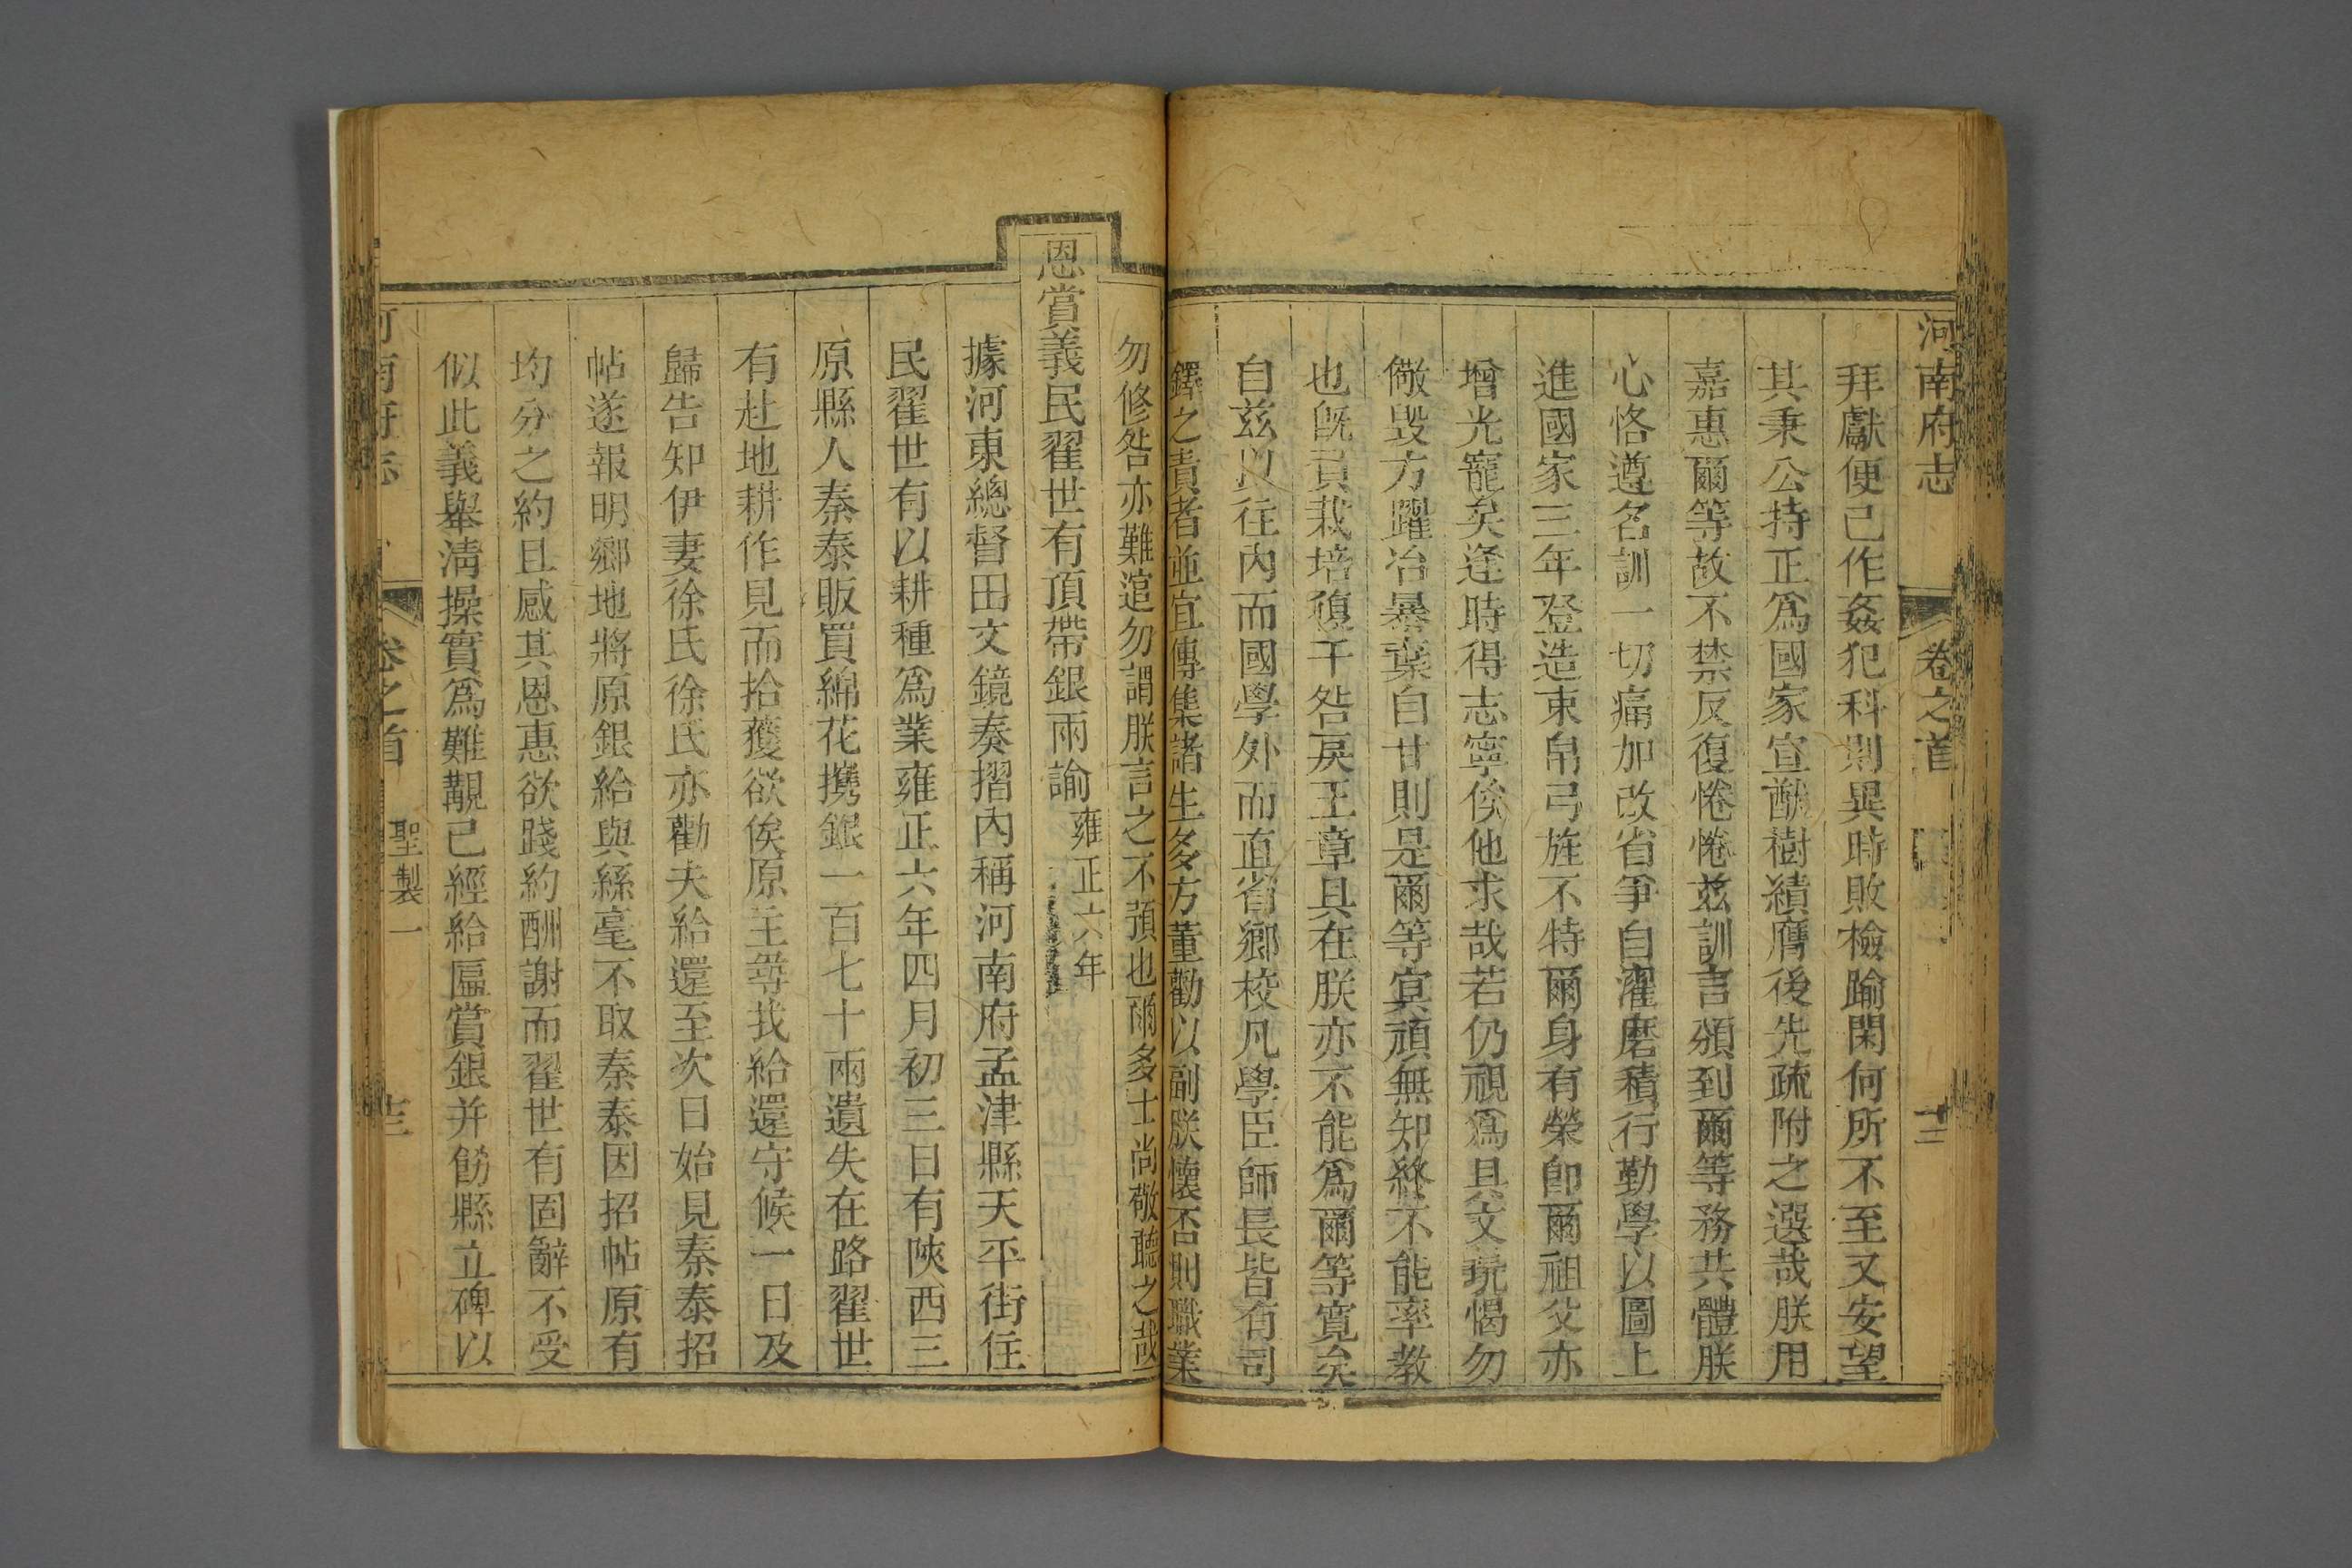 河南府志 卷之首
拜獻便已作姦犯科則異時敗檢踰閑何所不至又安望
其秉公持正爲國家宣猷樹績膺後先疏附之選哉朕用
嘉惠爾等故不禁反復惓惓兹訓言頒到爾等務共體朕
心恪遵名訓一切痛加改省爭自濯磨積行勤學以圖上
進國家三年登造束帛弓旌不特爾身有榮卽爾祖父亦
增光寵矣逢時得志寧俟他求哉若仍視爲具文玩愒勿
儆毁方躍冶暴棄自甘則是爾等冥頑無知終不能率教
也旣負栽培復干咎戾王章具在朕亦不能爲爾等寛矣
自兹以往內而國學外而直省鄉校凡學臣師長皆有司
鐸之責者並宜傳集諸生多方董勸以副朕懷否則職業
勿修咎亦難逭勿謂朕言之不預也爾多士尚敬聽之哉
恩賞義民翟世有頂帶銀兩諭 雍正六年
據河東總督田文鏡奏摺內稱河南府孟津縣天平街住
民翟世有以耕種爲業雍正六年四月初三日有陜西三
原縣人秦泰販買綿花攜銀一百七十兩遺失在路翟世
有赴地耕作見而拾獲欲俟原主尋找給還守候一日及
歸告知伊妻徐氏徐氏亦勸夫給還至次日始見秦泰招
帖遂報明鄉地將原銀給與絲毫不取秦泰因招帖原有
均分之約且感其恩惠欲踐約酬謝而翟世有固辭不受
似此義舉淸操實爲難覯已經給匾賞銀并飭縣立碑以
河南府志 卷之首 聖製一